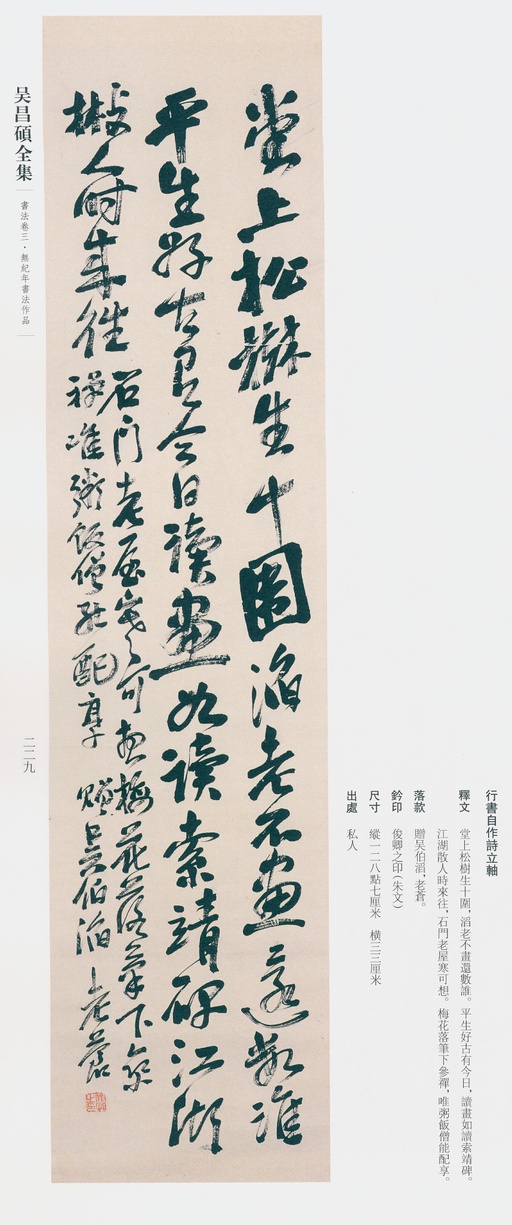 行書自作詩立軸
釋文 堂上松樹生十圍，滔老不畫還數誰。平生好古有今日，讀畫如讀索靖碑。
江湖散人時來往，石門老屋寒可想。梅花落筆下參禪，唯粥飯僧能配享。
落款 贈吴伯滔，老蒼。
鈐印 俊卿之印（朱文）
尺寸 縱一二八點七厘米 橫三三厘米
出處 私人
堂上松樹生十圍滔老不畫還數誰
平生好古有今日讀畫如讀索靖碑江湖
散人時來往
石門老屋寒可想梅花落筆下參
禪唯粥飯僧能配享 贈吴伯滔 老蒼
俊卿之印
吴昌碩全集
書法卷三·無紀年書法作品
二二九